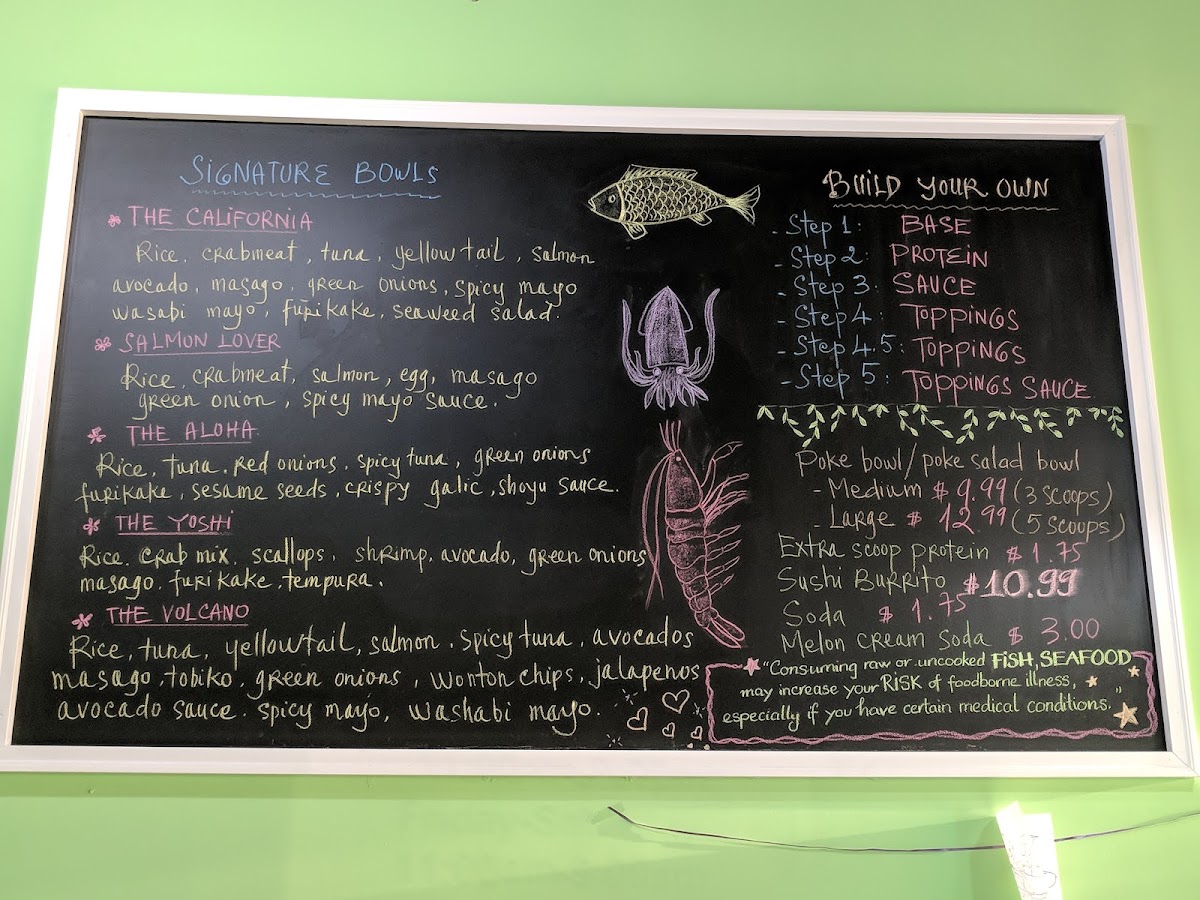 SIGNATURE BOWLS
THE CALIFORNIA
Rice, crabmeat, tuna, yellowtail, salmon
avocado, masago, green onions, spicy mayo
wasabi mayo, furikake, seaweed salad.
SALMON LOVER
Rice, crabmeat, salmon, egg, masago
green onion, spicy mayo sauce.
THE ALOHA
Rice, tuna, red onions, spicy tuna, green onions
furikake, sesame seeds, crispy galic, shoyu sauce.
THE YOSHI
Rice, crab mix, scallops, shrimp, avocado, green onions
masago, furikake, tempura.
THE VOLCANO
Rice, tuna, yellowtail, salmon, spicy tuna, avocados
masago, tobiko, green onions, wonton chips, jalapenos
avocado sauce, spicy mayo, washabi mayo.
BUILD YOUR OWN
- Step 1: BASE
- Step 2: PROTEIN
- Step 3: SAUCE
- Step 4: TOPPINGS
- Step 4.5: TOPPINGS
- Step 5: TOPPINGS SAUCE
Poke bowl/poke salad bowl
- Medium $9.99 (3 scoops)
- Large $12.99 (5 scoops)
Extra scoop protein $1.75
Sushi Burrito $10.99
Soda $1.75
Melon cream soda $3.00
"Consuming raw or uncooked FISH, SEAFOOD
may increase your RISK of foodborne illness,
especially if you have certain medical conditions."